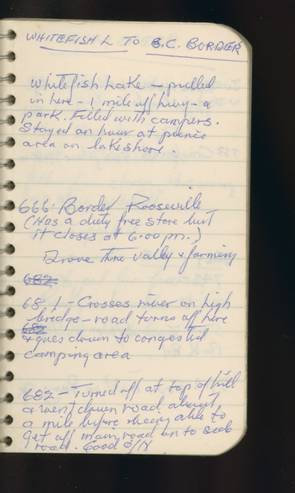 WHITEFISH L TO B.C. BORDER
Whitefish Lake - pulled
in here - 1 mile off hiwy - a
park. Filled with campers.
Stayed an hour at picnic
area on lakeshore.
666 - Border Rooseville
(Has a duty free store but
it closes at 6:00 pm.)
Drove thru valley & farming
682
68.1 - Crosses river on high
bridge - road turns off here
682
& goes down to congested
camping area
682 - Turned off at top of hill
& went down road about
a mile before being able to
get off main road on to side
road. Good O/N